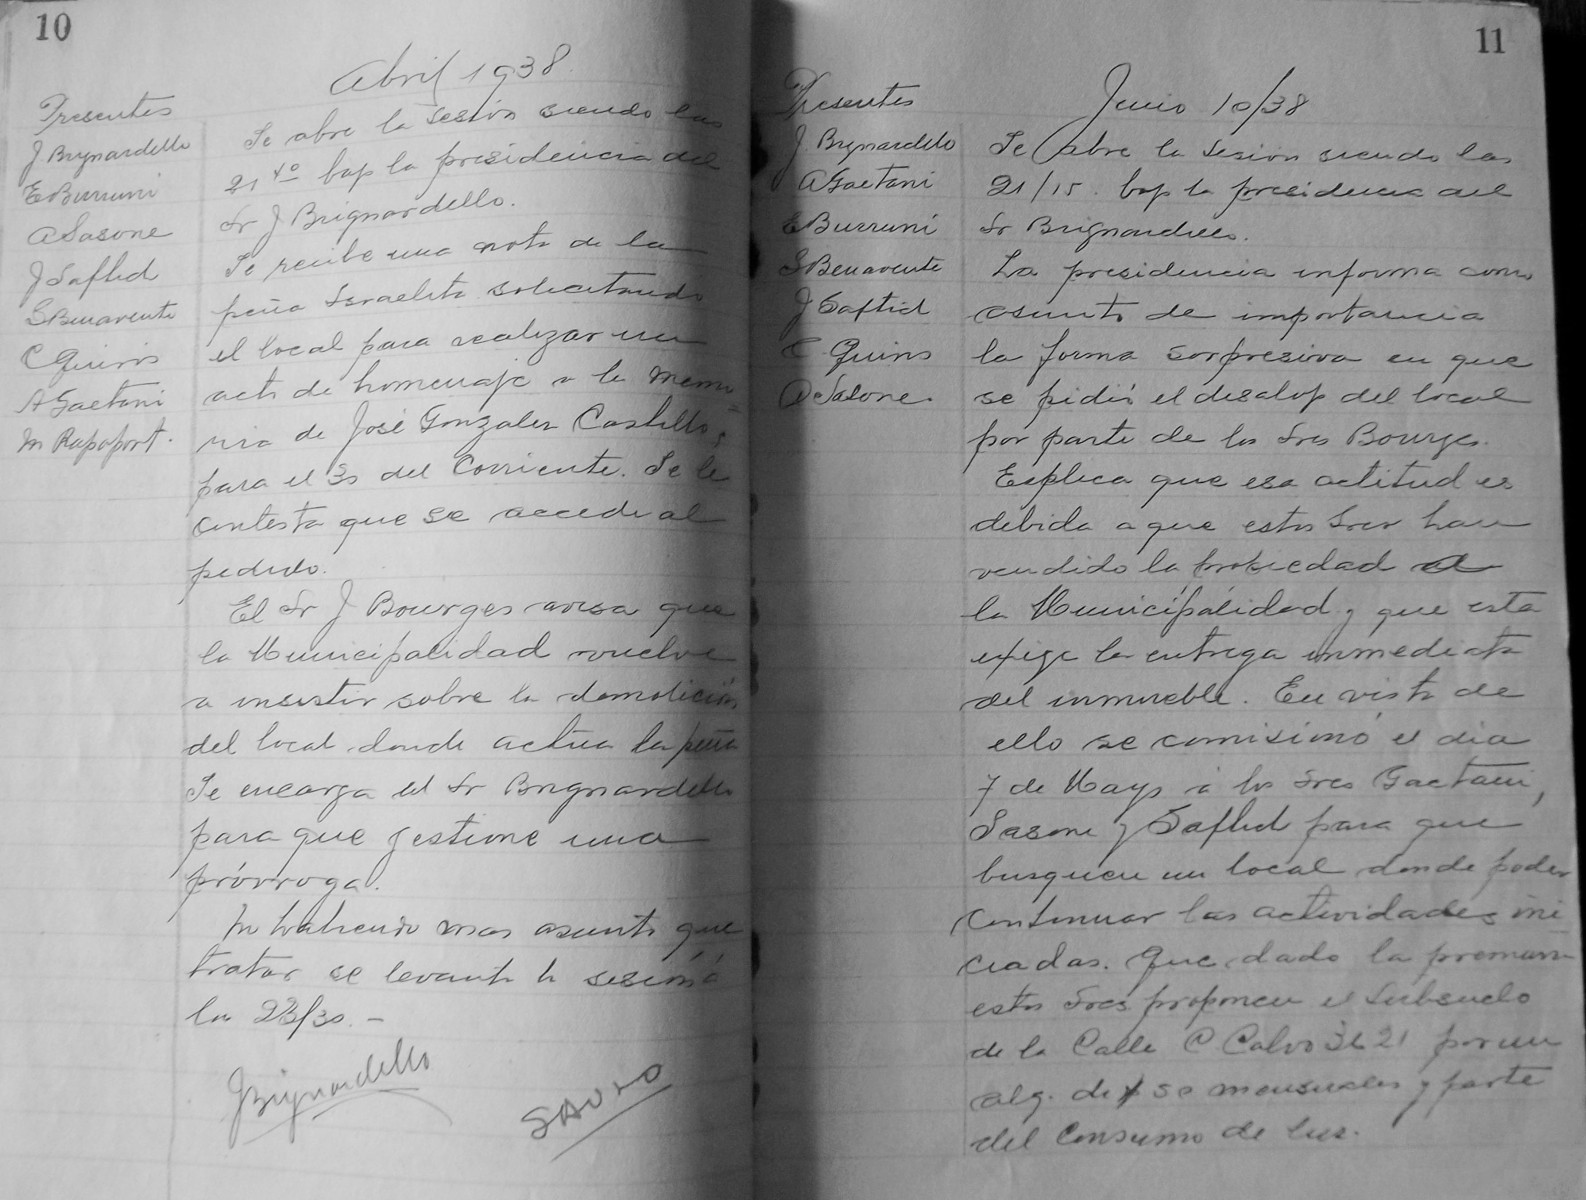 10
Abril 1938.
Presentes
J Brignardello
E Burruni
A Sasone
J Saffied
S Benavente
C Quiros
A Gaetani
M Rapoport.
Se abre la sesión siendo las
21 40 bajo la presidencia del
Sr J Brignardello.
Se recibe una nota de la
peña Israelita solicitando
el local para realizar un
acto de homenaje a la memo
ria de José Gonzalez Castillo,
para el 30 del Corriente. Se le
contesta que se accede al
pedido.
El Sr J Bourges avisa que
la Municipalidad vuelve
a insistir sobre la demolición
del local donde actúa la peña
Se encarga al Sr Brignardello
para que gestione una
prórroga.
No habiendo mas asunto que
tratar se levanta la sesión á
las 23/30. —
JBrignardello
11
Junio 10/38
Presentes
J. Brignardello
A Gaetani
E Burruni
S Benavente
J Saffied
C Quiros
A Sasone.
Se abre la sesión siendo las
21/15. bajo la presidencia del
Sr Brignardello.
La presidencia informa como
asunto de importancia
la forma sorpresiva en que
se pidió el desalojo del local
por parte de los Sres Bourges.
Explica que esa actitud es
debida a que estos Sres han
vendido la propiedad a
la Municipalidad y que esta
exige la entrega inmediata
del inmueble. En vista de
ello se comisionó el dia
7 de Mayo á los Sres Gaetani,
Sasone y Saffied para que
busquen un local donde poder
continuar las actividades ini
ciadas. Que dado la premura
estos Sres proponen el Subsuelo
de la Calle C Calvo 3621 por un
alq. de $ 50 mensuales y parte
del Consumo de luz.